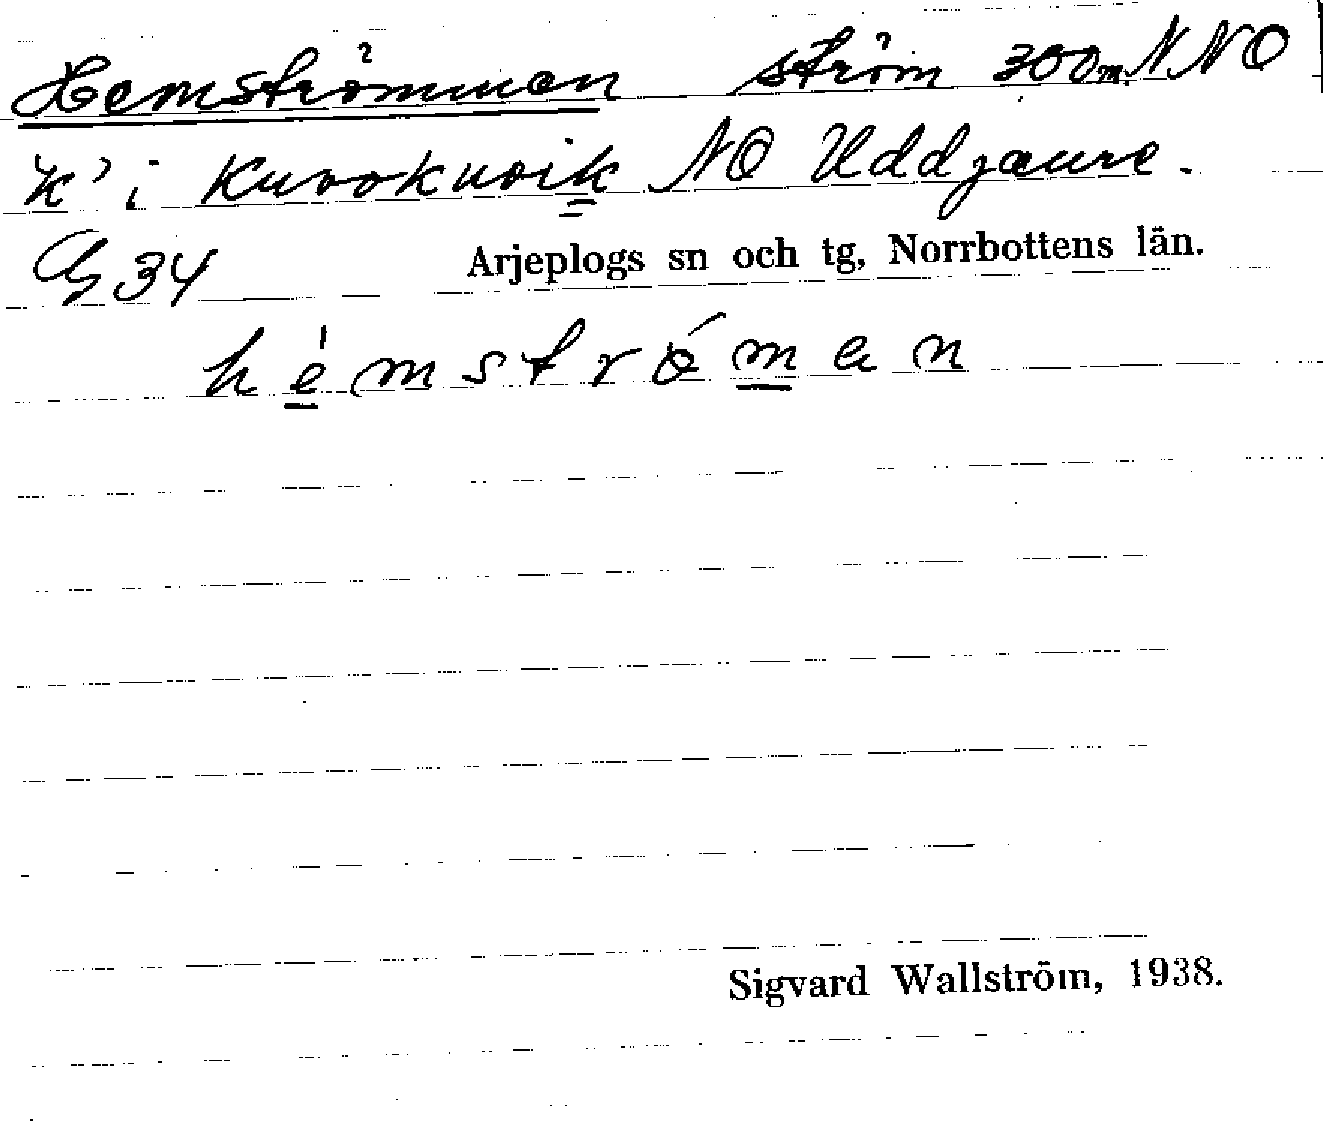 Hemströmmen ström 300 m NNO
"k" i Kuvokuvik NO Uddjaure.
G 34 Arjeplogs sn och tg, Norrbottens län.
hémströ́man
Sigvard Wallström, 1938.